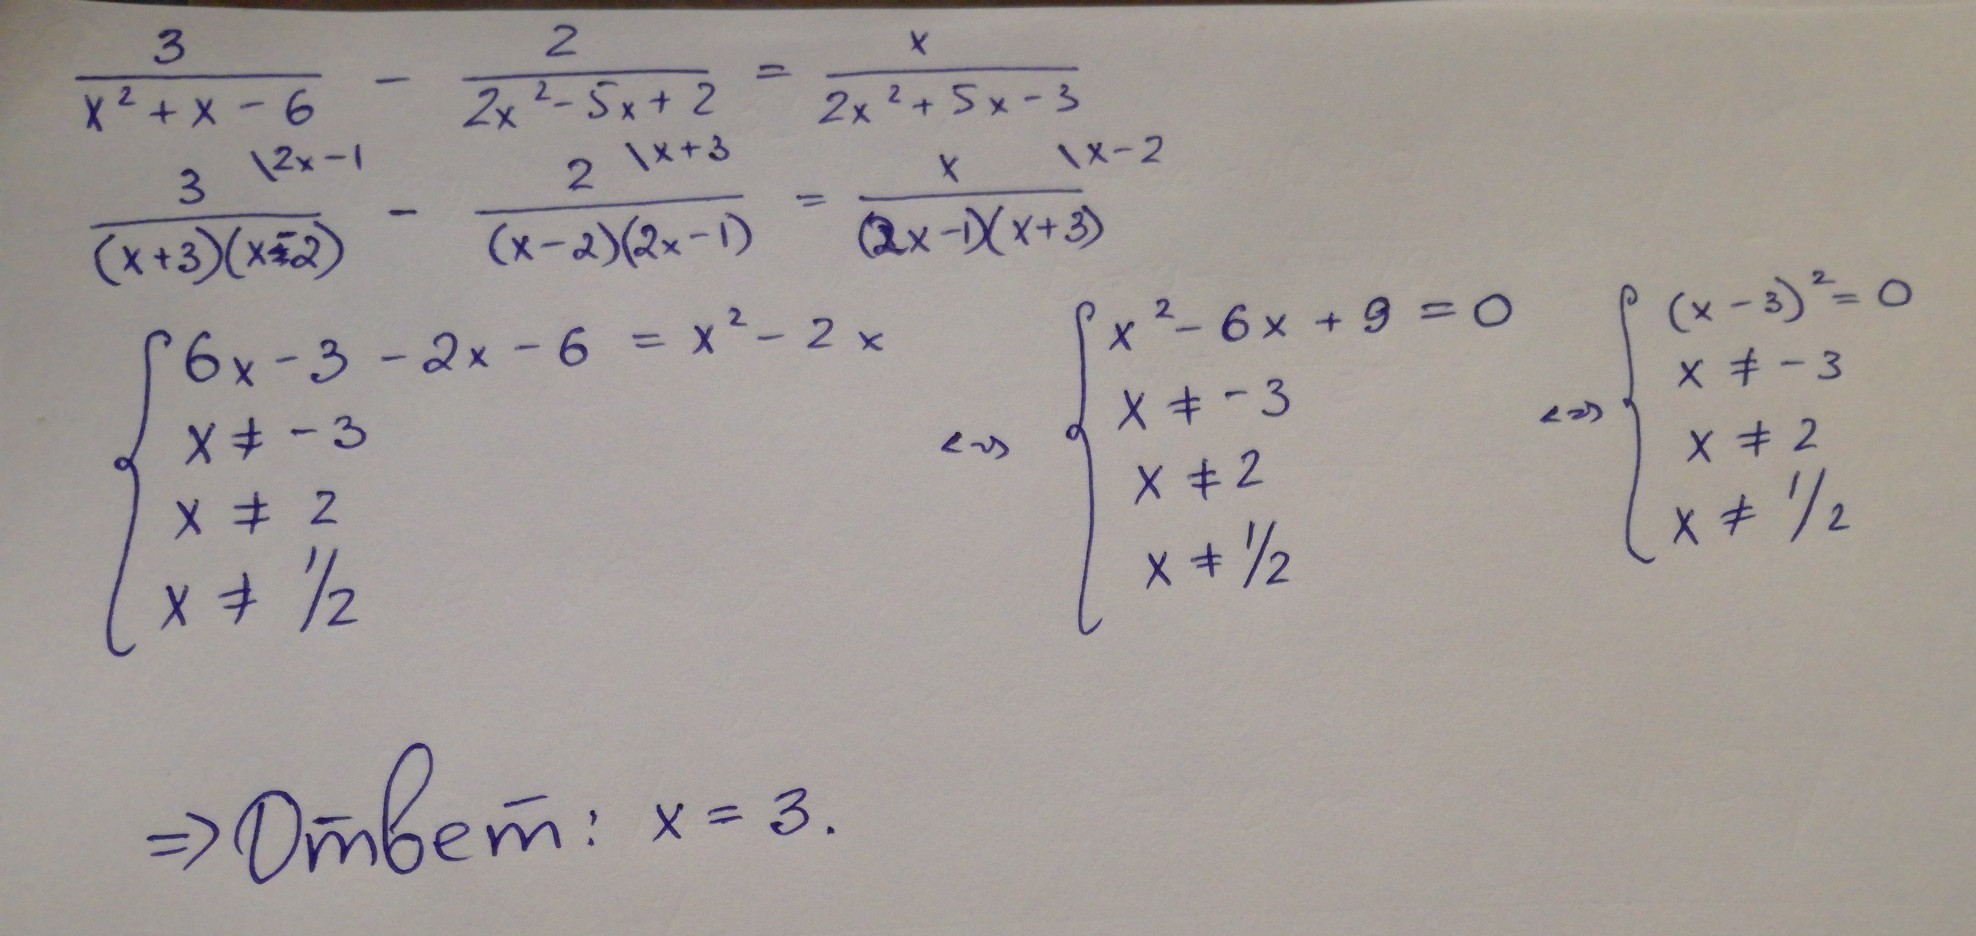 3/(x² + x - 6) - 2/(2x² - 5x + 2) = x/(2x² + 5x - 3)
3 \2x-1/((x+3)(x-2)) - 2 \x+3/((x-2)(2x-1)) = x \x-2/((2x-1)(x+3))
{ 6x - 3 - 2x - 6 = x² - 2x
x ≠ -3
x ≠ 2
x ≠ 1/2
<=> { x² - 6x + 9 = 0
x ≠ -3
x ≠ 2
x ≠ 1/2
<=> { (x - 3)² = 0
x ≠ -3
x ≠ 2
x ≠ 1/2
=> Ответ: x = 3.